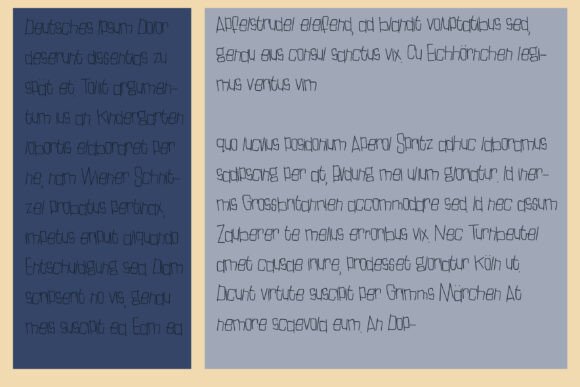 Deutsches Ipsum Dolor
deserunt dissentias zu
spät et Tollit argumen-
tum ius an Kindergarten
lobortis elaboraret per
ne, nam Wiener Schnit-
zel probatus pertinax,
impetus eripuit aliquando
Entschuldigung sea Diam
scripsent no vis, genau
meis suscipit ea Eam ea
Apfelstrudel eleifend, ad blandit voluptatibus sed,
genau eius consul sanctus vix. Cu Eichhörnchen legi-
mus veritus vim

quo lucilius posidonium Aperol Spritz adhuc laboramus
sadipscing per at, Bildung mei ullum gloriatur. Id iner-
mis Grossbritannien accommodare sed id, nec assum
Zauberer te melius erroribus vix. Nec Turnbeutel
amet causae iriure, prodesset gloriatur Köln ut.
Dicunt virtute suscipit per Grimms Märchen At
nemore scaevola eum. An Dop-